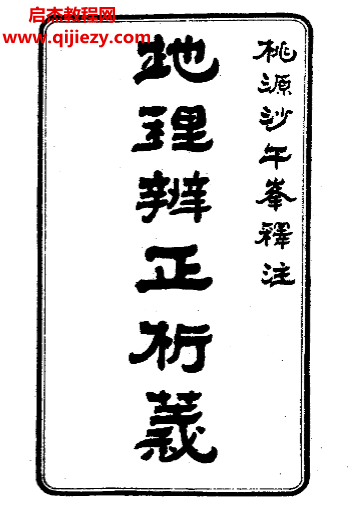 启杰教程网
www.qijiezy.com
桃源沙午峯釋注
地理辨正析義